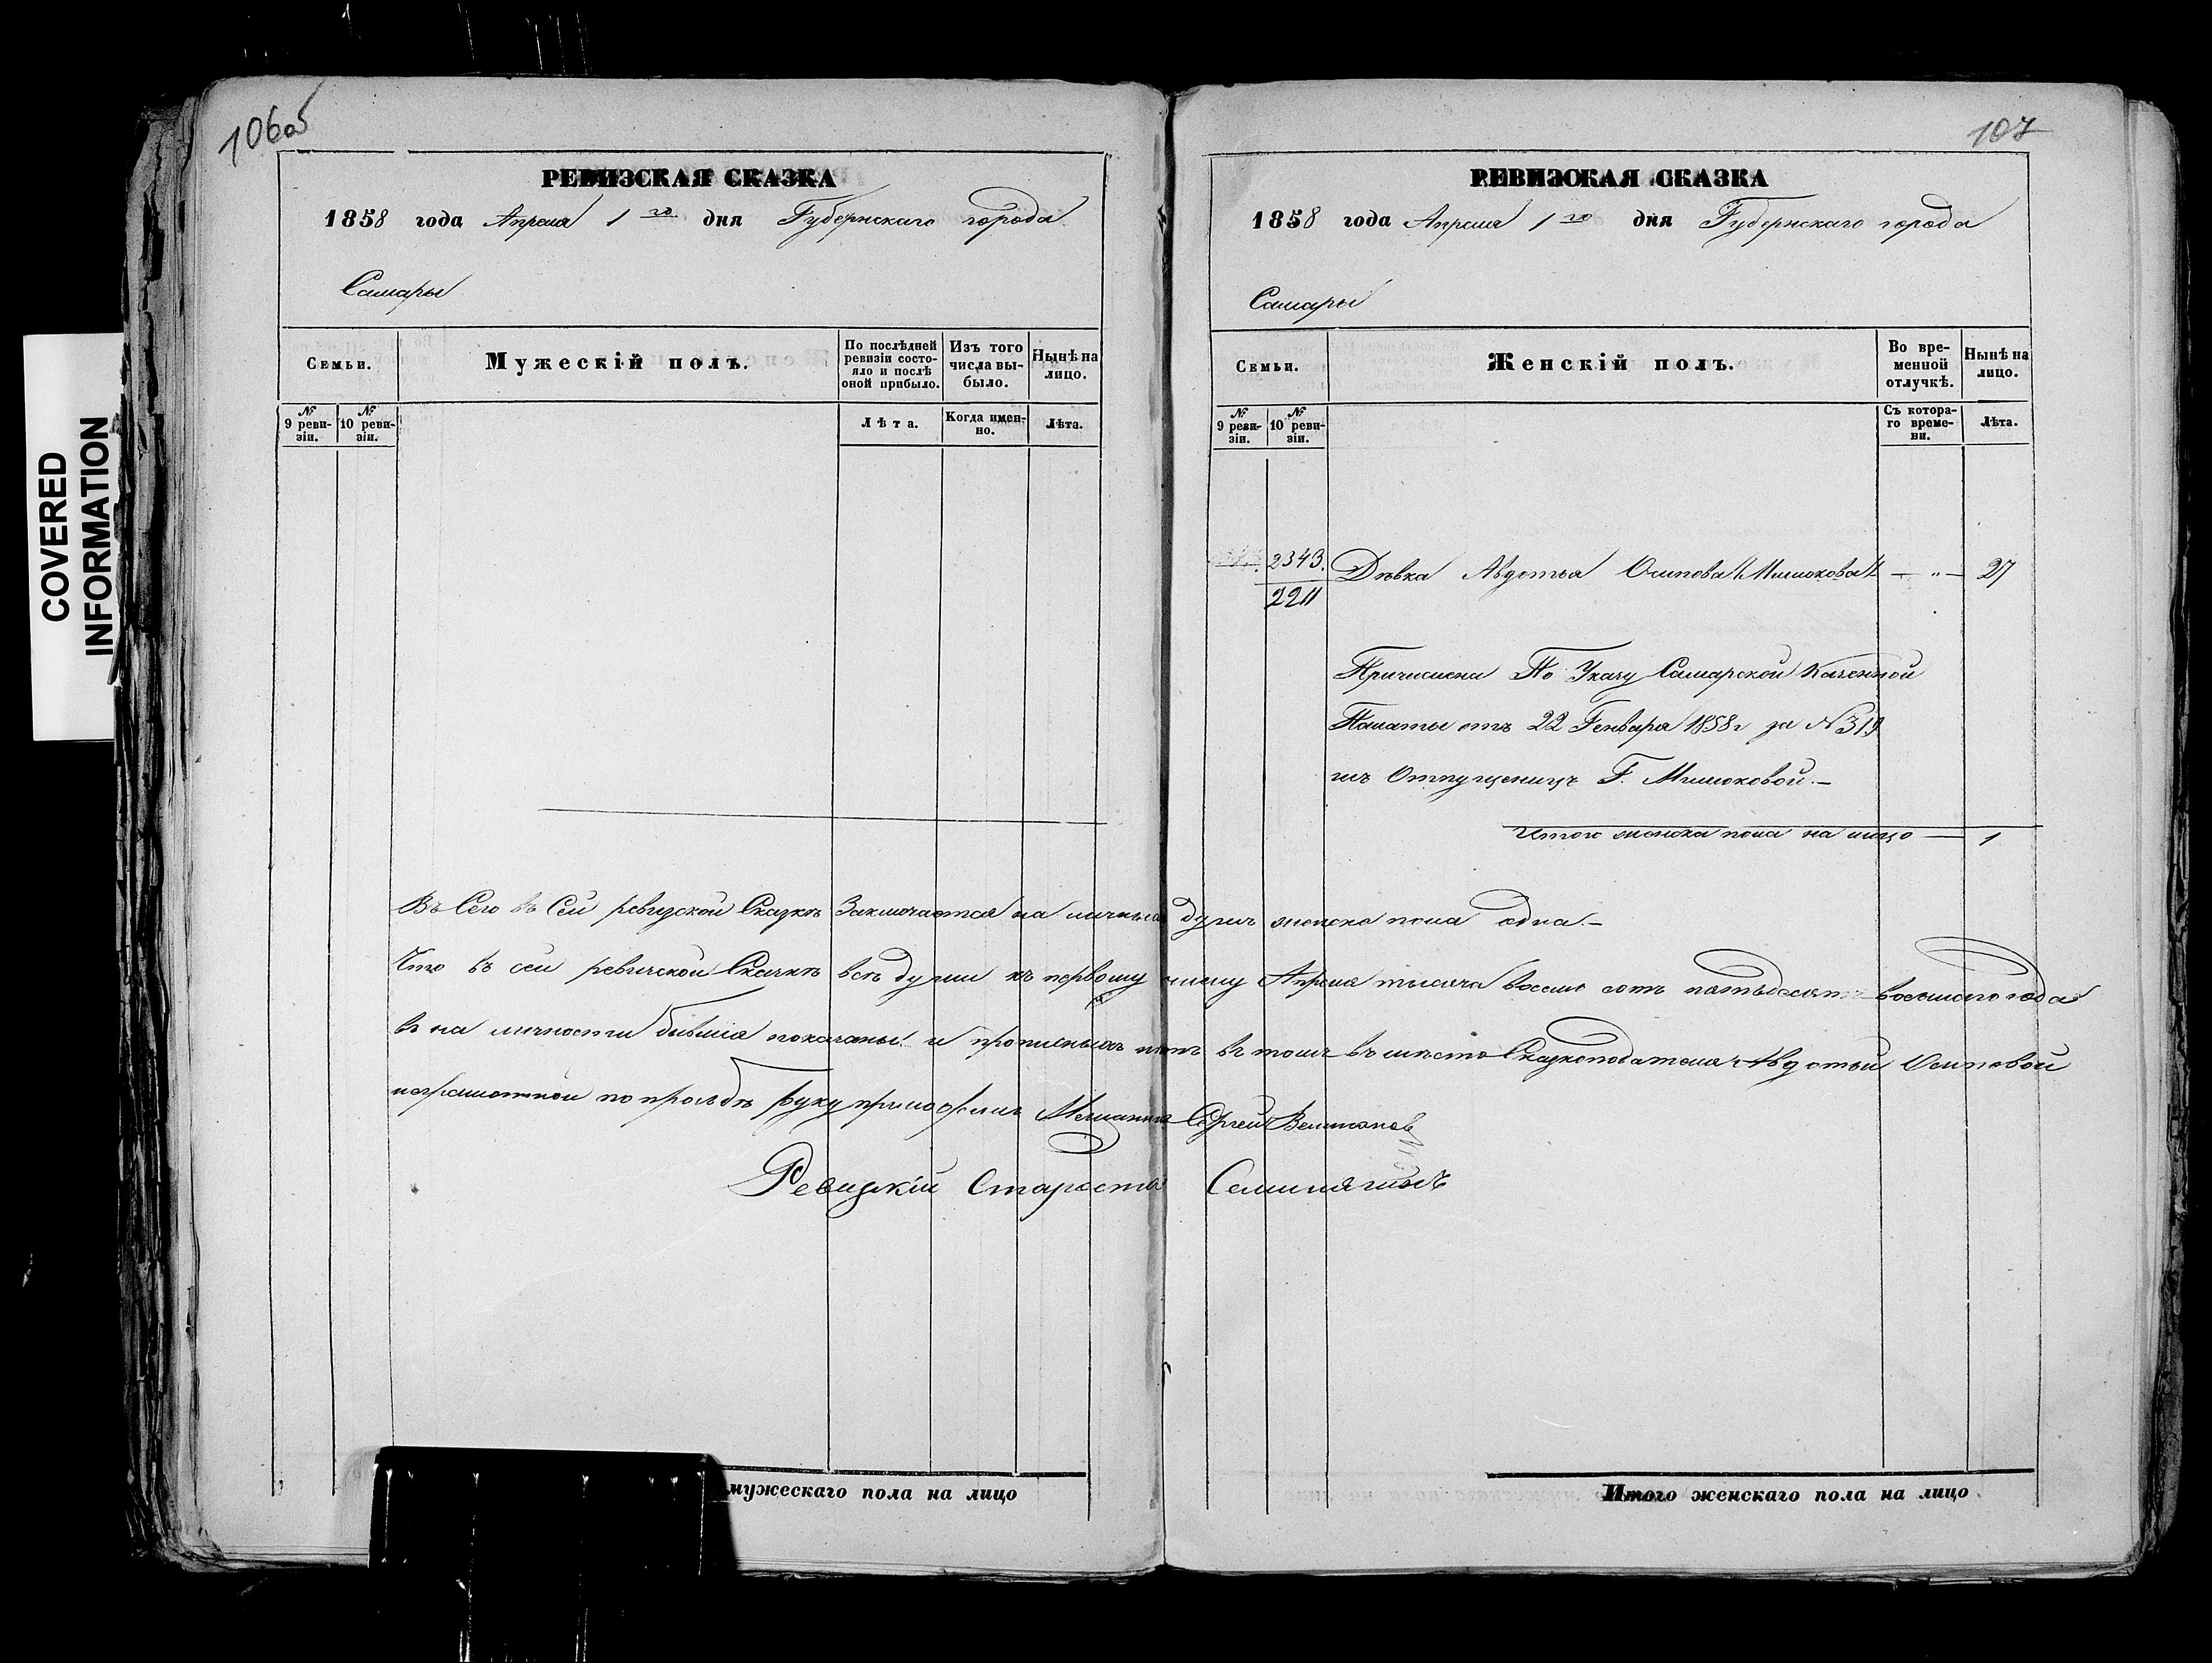 106об
РЕВИЗСКАЯ СКАЗКА
1858 года Апреля 1го дня Губернскаго города
Самары
Семьи.
Мужескій полъ.
По послѣдней ревизіи состояло и послѣ оной прибыло.
Изъ того числа выбыло.
Нынѣ на лицо.
№ 9 ревизіи.
№ 10 ревизіи.
Лѣта.
Когда именно.
Лѣта.
мужескаго пола на лицо
107
РЕВИЗСКАЯ СКАЗКА
1858 года Апреля 1го дня Губернскаго города
Самары
Семьи.
Женскій полъ.
Во временной отлучкѣ.
Нынѣ на лицо.
№ 9 ревизіи.
№ 10 ревизіи.
Съ котораго времени.
Лѣта.
2343. Дѣвка Авдотья Осипова Милюкова — „ — 27
2211
Причислена По Указу Самарской Казенной
Палаты отъ 22 Генваря 1858 г за № 319
изъ Отпущеницъ Г. Милюковой. —
Итого женска пола на лицо — 1
Въ Сего въ Сей ревизской Сказкѣ Заключается на личныхъ душъ женска пола одна. —
Что въ сей ревизской Сказкѣ всѣ души къ первому числу Апреля тысяча восемь сотъ пятьдесятъ восьмаго года
въ на личности бывшія показаны и прописныхъ нѣтъ въ томъ въ место Сказкоподателя Авдотьи Осиповой
неграмотной по прозьбѣ руку приложилъ Мещанинъ Сергей
Ревизкій Староста
Итого женскаго пола на лицо
COVERED
INFORMATION